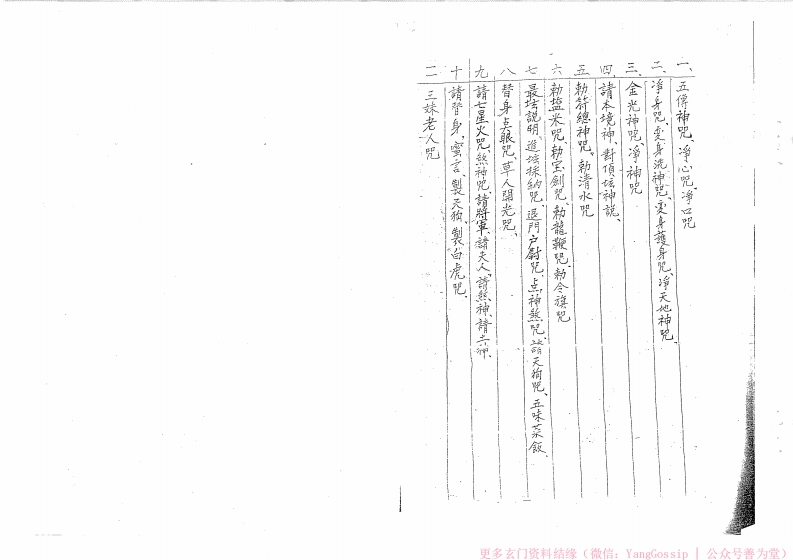 一、五傳神咒、淨心咒、淨口咒
二、淨身咒、变身洗神咒、变身護身咒、淨天地神咒、
三、金光神咒、淨神咒
四、請本境神、對頂坛神説、
五、勅符總神咒。勅清水咒
六、勅盐米咒、勅宝劍咒、勅龍鞭咒、勅令旗咒
七、最坛説明、進坛採納咒、退門户尉咒、点神煞咒、請天狗咒、五味菜飯、
八、替身点眼咒、草人開光咒、
九、請七星火咒、煞神咒、請將軍、請夫人、請煞神、請六
十、請替身，蜜言、製天狗、製白虎咒、
二 三妹老人咒
更多玄门资料结缘（微信：YangGossip | 公众号善为堂）